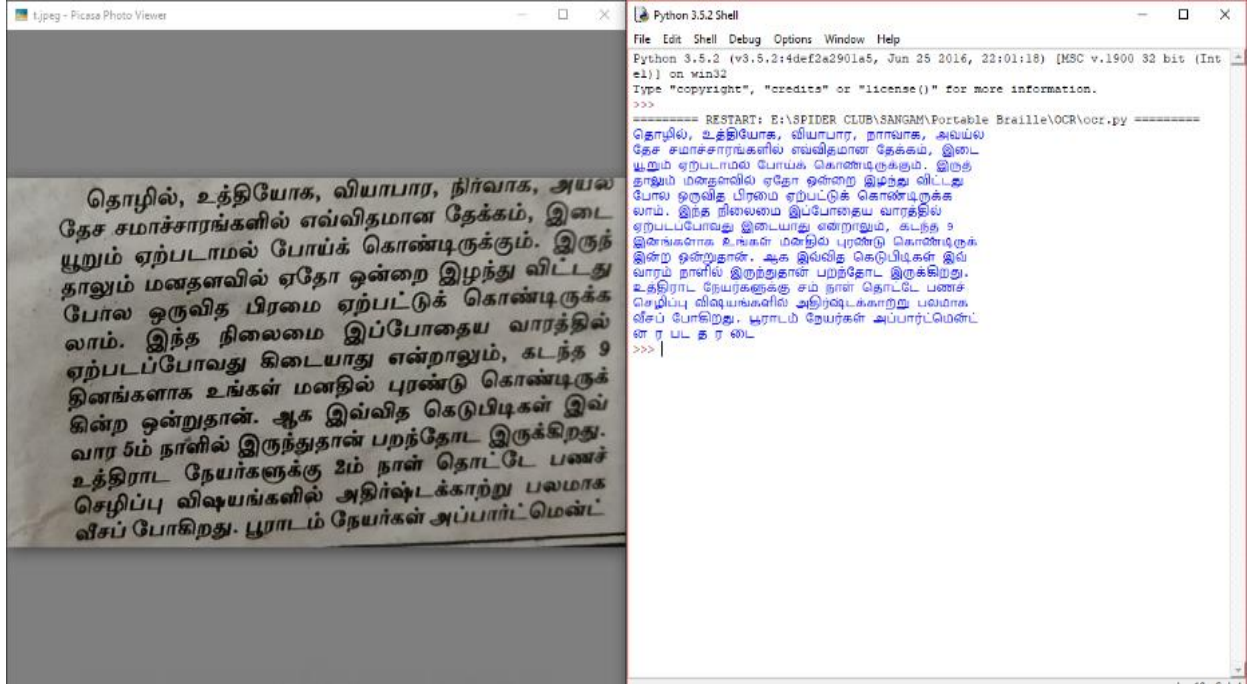 t.jpeg - Picasa Photo Viewer
தொழில், உத்தியோக, வியாபார, நிர்வாக, அயல
தேச சமாச்சாரங்களில் எவ்விதமான தேக்கம், இடை
யூறும் ஏற்படாமல் போய்க் கொண்டிருக்கும். இருந்
தாலும் மனதளவில் ஏதோ ஒன்றை இழந்து விட்டது
போல ஒருவித பிரமை ஏற்பட்டுக் கொண்டிருக்க
லாம். இந்த நிலைமை இப்போதைய வாரத்தில்
ஏற்படப்போவது கிடையாது என்றாலும், கடந்த 9
தினங்களாக உங்கள் மனதில் புரண்டு கொண்டிருக்
கின்ற ஒன்றுதான். ஆக இவ்வித கெடுபிடிகள் இவ்
வார 5ம் நாளில் இருந்துதான் பறந்தோட இருக்கிறது.
உத்திராட நேயர்களுக்கு 2ம் நாள் தொட்டே பணச்
செழிப்பு விஷயங்களில் அதிர்ஷ்டக்காற்று பலமாக
வீசப் போகிறது. பூராடம் நேயர்கள் அப்பார்ட்மென்ட்
Python 3.5.2 Shell
File Edit Shell Debug Options Window Help
Python 3.5.2 (v3.5.2:4def2a2901a5, Jun 25 2016, 22:01:18) [MSC v.1900 32 bit (Int
el)] on win32
Type "copyright", "credits" or "license()" for more information.
>>>
========= RESTART: E:\SPIDER CLUB\SANGAM\Portable Braille\OCR\ocr.py =========
தொழில், உத்தியோக, வியாபார, நாாவாக, அவய்ல
தேச சமாச்சாரங்களில் எவ்விதமான தேக்கம், இடை
யூறும் ஏற்படாமல் போய்க் கொண்டிருக்கும். இருத்
தாலும் மனதளவில் ஏதோ ஒன்றை இழந்து விட்டது
போல ஒருவித பிரமை ஏற்பட்டுக் கொண்டிருக்க
லாம். இந்த நிலைமை இப்போதைய வாரத்தில்
ஏற்படப்போவது இடையாது என்றாலும், கடந்த 9
இனங்களாக உங்கள் மனதில் புரண்டு கொண்டிருக்
இன்ற ஒன்றுதான். ஆக இவ்வித கெடுபிடிகள் இவ்
வாரம் நாளில் இருந்துதான் பறந்தோட இருக்கிறது.
உத்திராட நேயர்களுக்கு சம் நாள் தொட்டே பணச்
செழிப்பு விஷயங்களில் அதிர்ஷ்டக்காற்று பலமாக
வீசப் போகிறது. பூராடம் நேயர்கள் அப்பார்ட்மென்ட்
ன ர பட த ர டை
>>>